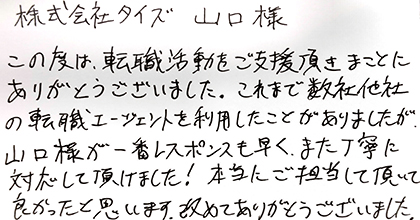 株式会社タイズ 山口様
この度は、転職活動をご支援頂きまことに
ありがとうございました。これまで数社他社
の転職エージェントを利用したことがありましたが、
山口様が一番レスポンスも早く、また丁寧に
対応して頂けました!本当にご担当して頂いて
良かったと思います。改めてありがとうございました。